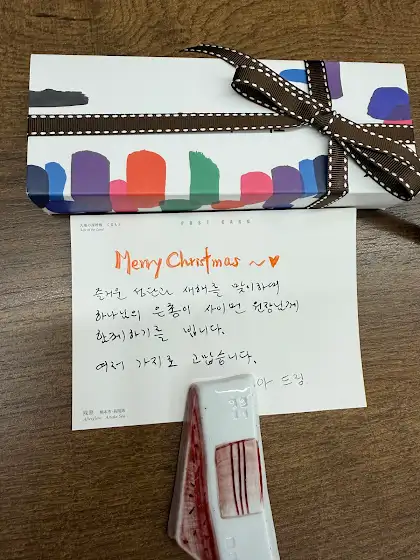 POST CARD
Merry Christmas ~♥
즐거운 성탄과 새해를 맞이하며
하나님의 은총이 사이먼 원장님께
함께하기를 빕니다.
여러 가지로 고맙습니다.
드림